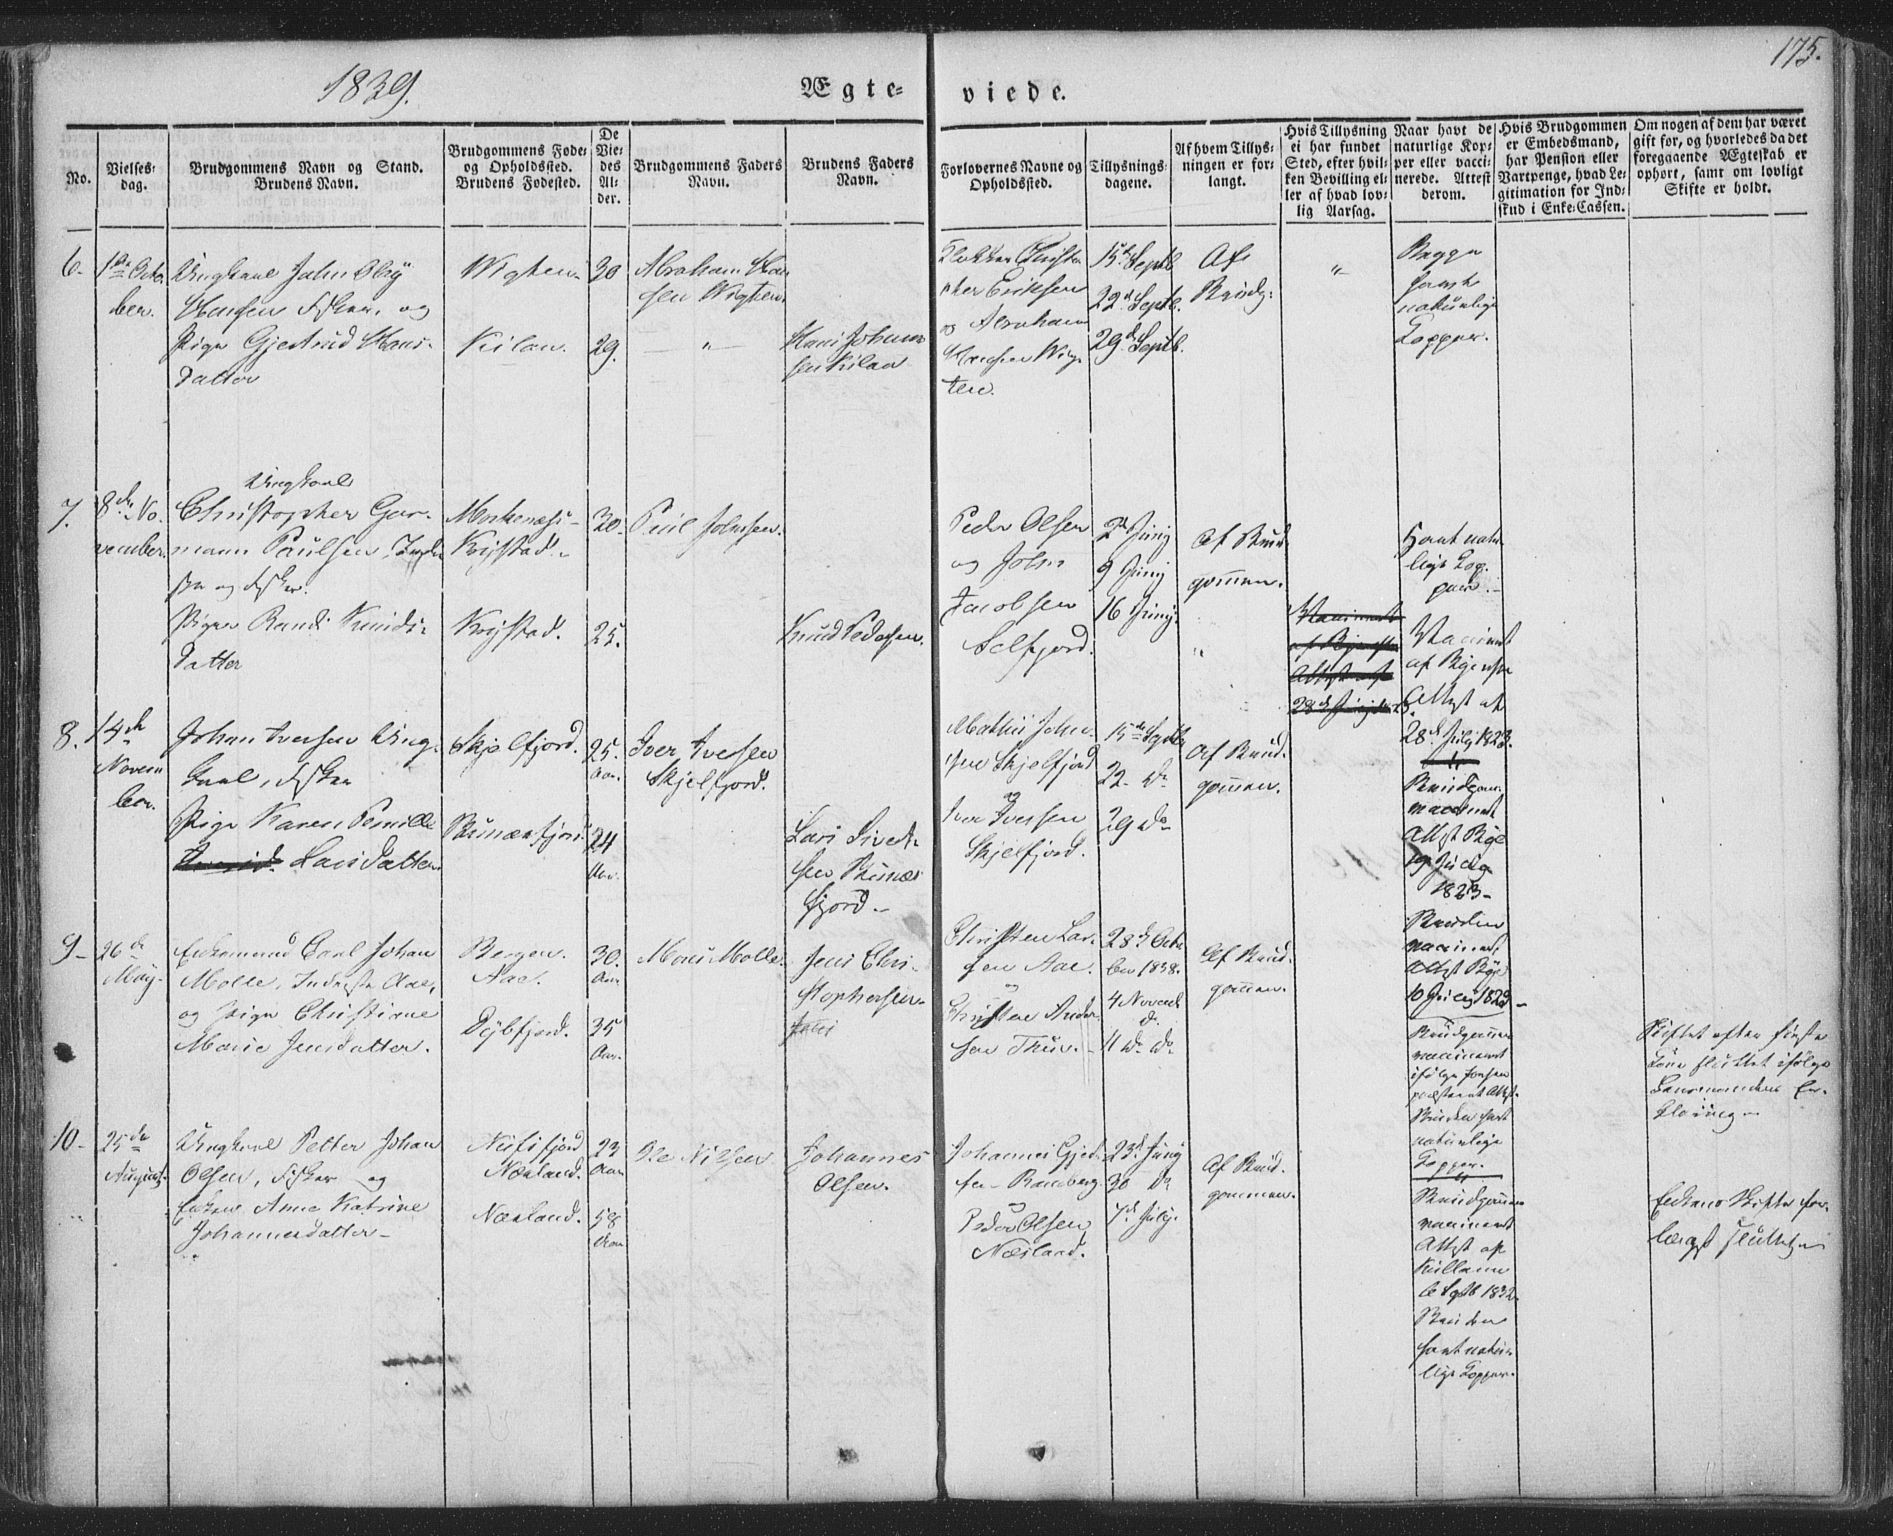 175.
1839.
Ægte- viede.
No.
Vielses-
dag.
Brudgommens Navn og Stand.
Brudens Navn.
Brudgommens Føde-
og Opholdssted.
Brudens Fødested.
De
Vie-
des
Al-
der.
Brudgommens Faders
Navn.
Brudens Faders
Navn.
Forlovernes Navne og
Opholdssted.
Tillysnings-
dagene.
Af hvem Tillys-
ningen er for-
langt.
Hvis Tillysning
ei har fundet
Sted, efter hvil-
ken Bevilling el-
ler af hvad lov-
lig Aarsag.
Naar havt de
naturlige Kop-
per eller vacci-
nerede. Attest
derom.
Hvis Brudgommen
er Embedsmand,
har Pension eller
Vartpenge, hvad Le-
gitimation for Ind-
skud i Enke-Cassen.
Om nogen af dem har været
gift før, og hvorledes da det
foregaaende Ægteskab er
ophørt, samt om lovligt
Skifte er holdt.
6-
Octo-
ber.
Ungkarl John
Hansen Fisker, og
Pige Gjertrud Hans-
datter
Wigten
Kilan.
30
29.
Abraham Han
sen Wigten.
— " —
Hans Johann
sen Kilan
Klokker Christo
pher Eriksen
og Abraham
Hansen Wig-
ten.
15d Septb.
22d Septb.
29d Septb.
Af
Brudg:
"
Begge
havt
naturlige
Kopper.
7.
8de No-
vember.
Ungkarl
Christopher Gar-
mann Paulsen
og Fisker.
Pigen Randi Knuds-
datter
Krystad.
Krystad.
30.
25.
Poul Johnsen.
Knud Pedersen.
Peder Olsen
og John
Jacobsen
Selfjord.
2d Juny
9 Juny
16 Juny.
Af Brud-
gommen.
"
Havt natur-
lige Kop-
per.
Vaccineret
af
Attest af
28de July 1823.
8.
14de
Novem
ber.
Johan Iversen Ung-
karl, Fisker
Pige Karen Pernille
Larsdatter.
Skjelfjord.
25.
Aar.
24
Aar.
Iver Iversen
Skjelfjord.
Lars Sivert-
sen
fjord-
John-
sen Skjelfjord
og
Iver Iversen
Skjelfjord.
15de Septb.
22- do
29 do
Af Brud-
gommen.
Brudgom.
vaccineret
Attest
19 July
1823-
Bruden
vaccineret.
Attest
10 July 1823-
9-
26de
May-
Enkemand Carl Johan
Molle, Aae,
og Pige Christiane
Marie Jensdatter.
Bergen.
Aae.
Dybfjord.
30.
Aar
35
Aar.
Mons Molle.
Jens Chri-
stophersen
Christen Lar-
sen Aae.
og
Christen Ander-
sen
28de Octo
ber 1838.
4 Novemb
11 do do
Af Brud-
gommen.
Brudgommen
vaccineret
ifølge
Attest.
Bruden havt
naturlige
Kopper.
Skiftet efter første
Kone sluttet ifølge
Lensmandens Er-
klæring-
10-
25de
August.
Ungkarl Petter Johan
Olsen, Fisker og
Enken Anne Katrine
Johannesdatter-
Næsland.
Næsland.
23
Aar
58
Aar
Ole Nilsen
Johannes
Olsen.
Johannes Gjert-
sen Ramberg
Peder Olsen
Næsland.
23d Juny
30 do
7d July.
Af Brud-
gommen.
Brudgommen
vaccineret
Attest af
6 Septb 1832.
Bruden
havt natur-
lige Kopper.
Enkens Skifte for-
længst sluttet